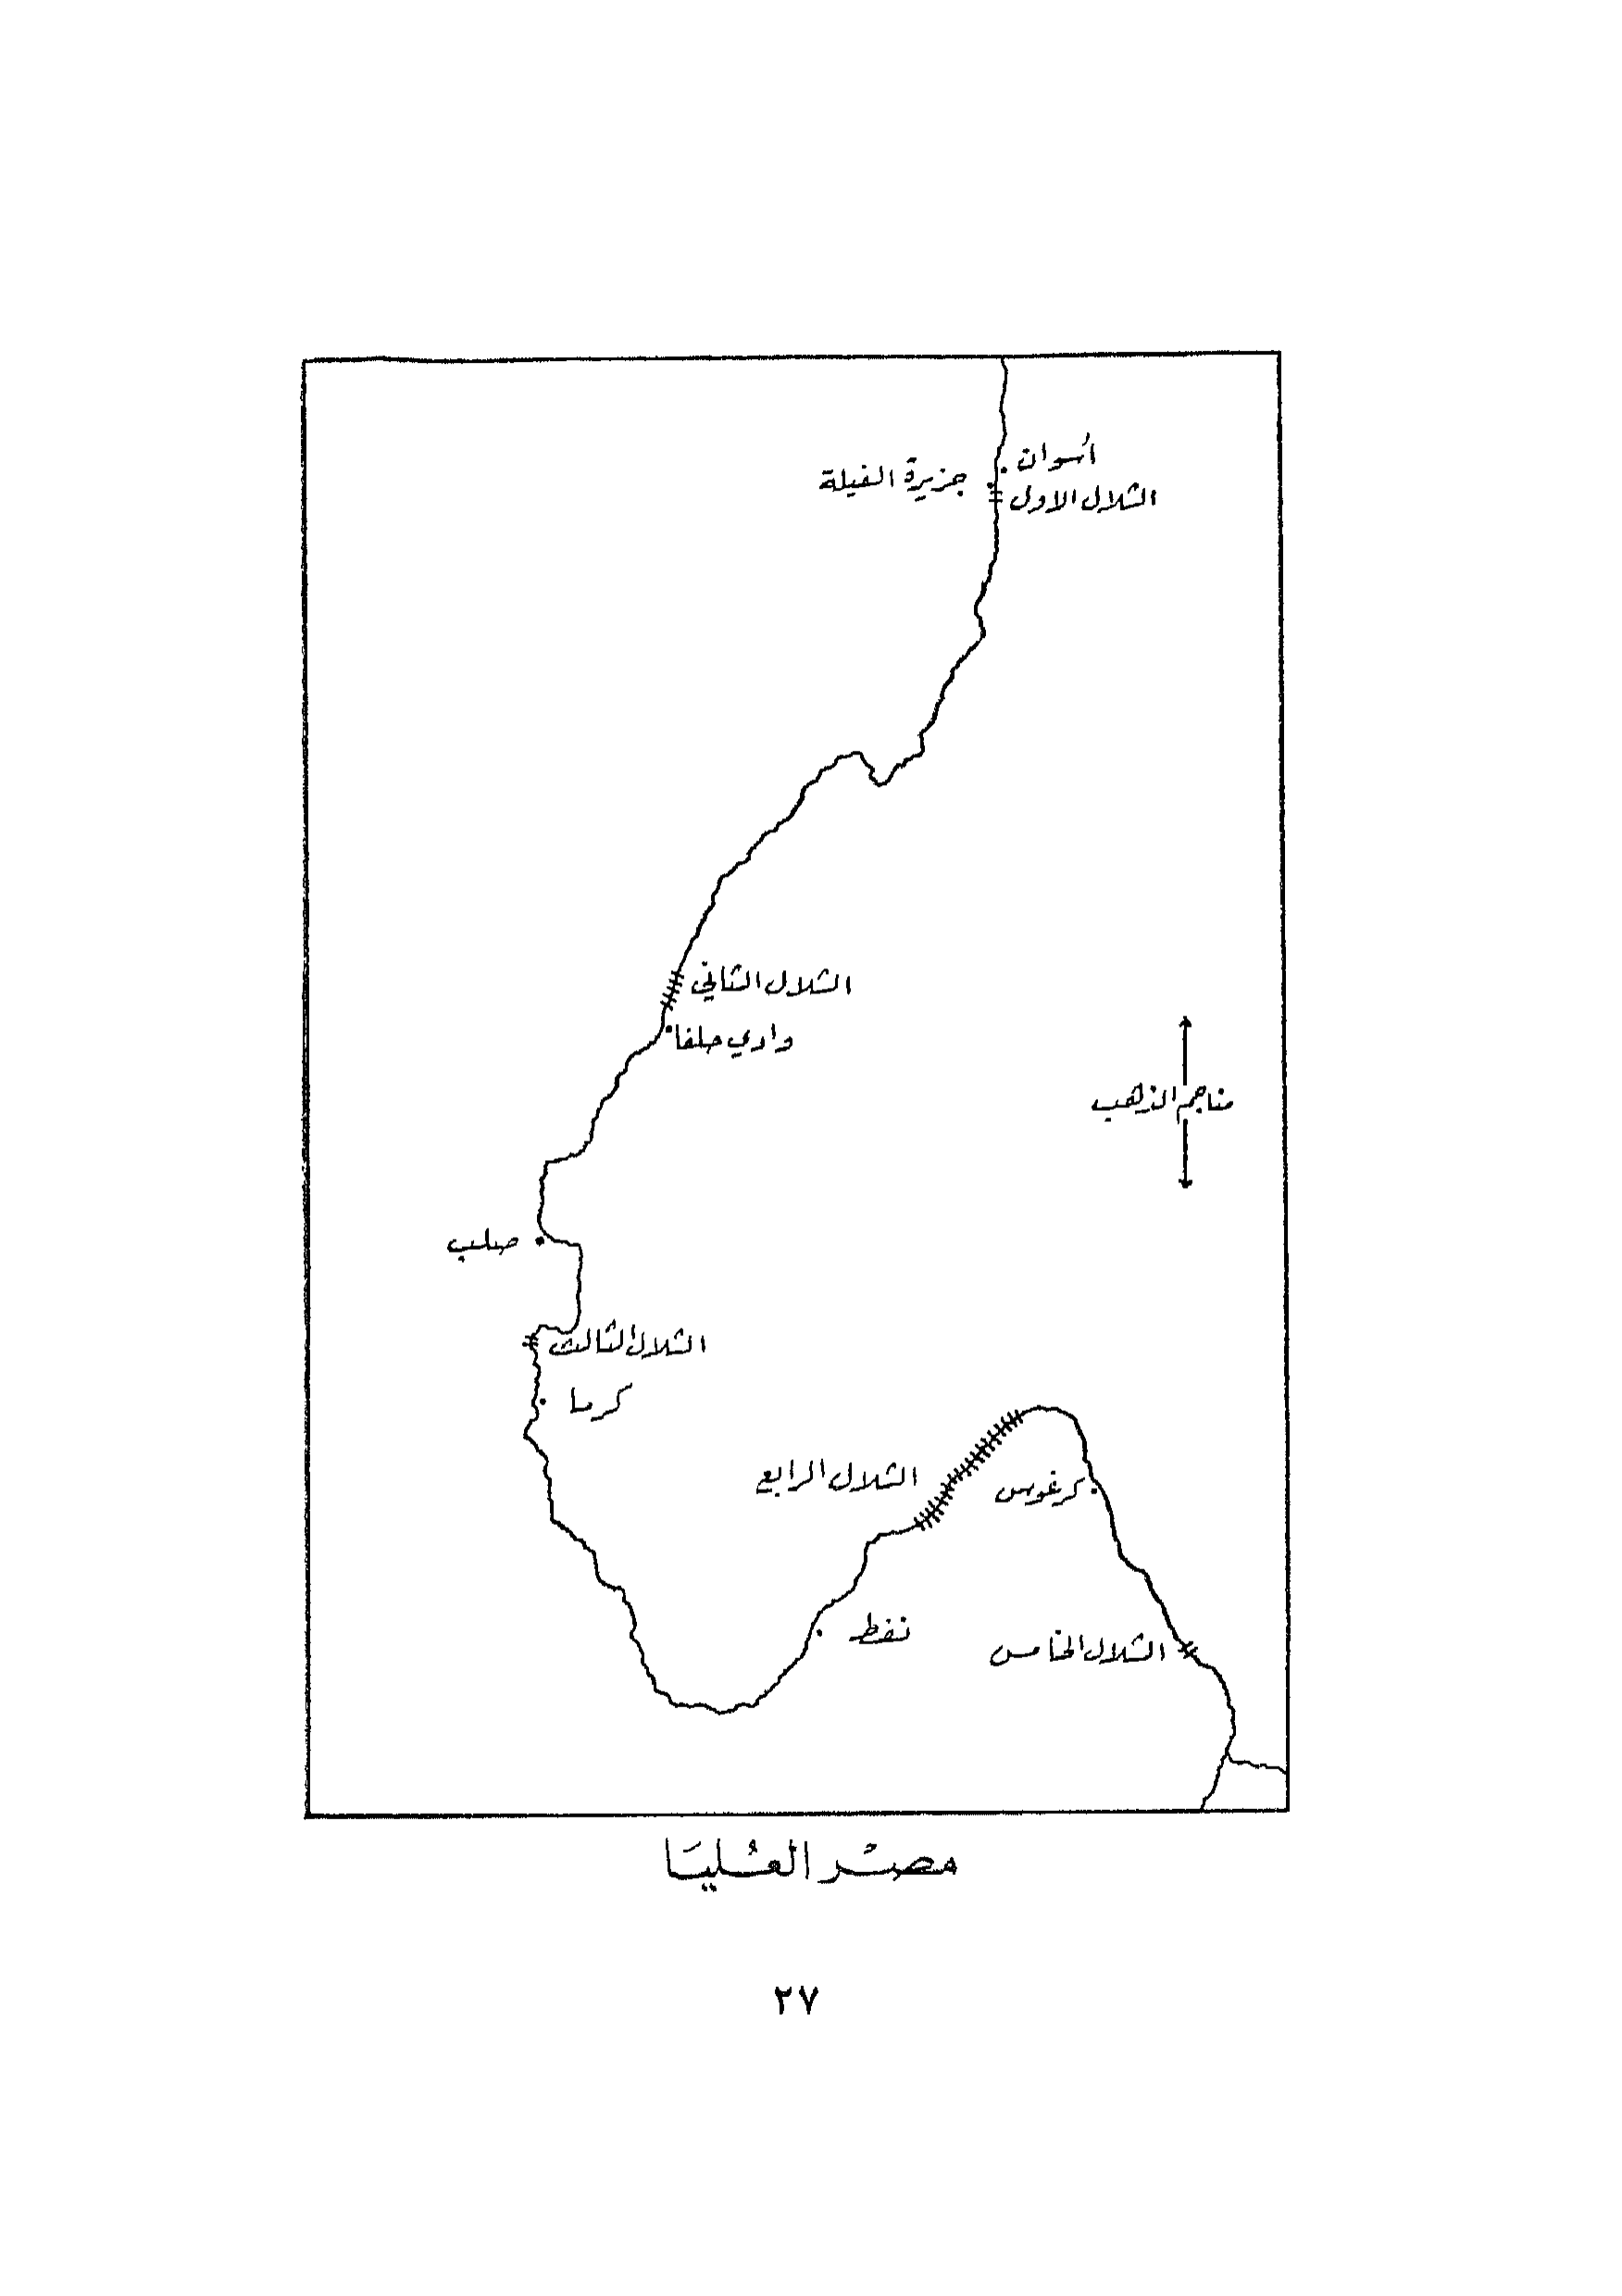 أسوان
جزيرة الفيلة
الشلال الاول
الشلال الثاني
وادي حلفا
مناجم الذهب
صلب
الشلال الثالث
كرما
الشلال الرابع
كرغوس
نفط
الشلال الخامس
مصْر العُليَا
٢٧